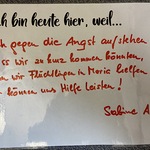 ch bin heute hier, weil...
ch gegen die Angst aufstehen
ss wir zu kurz kommen könnten,
wir Flüchtlingen in Moria helfen
können uns Hilfe leisten!
Sabine A